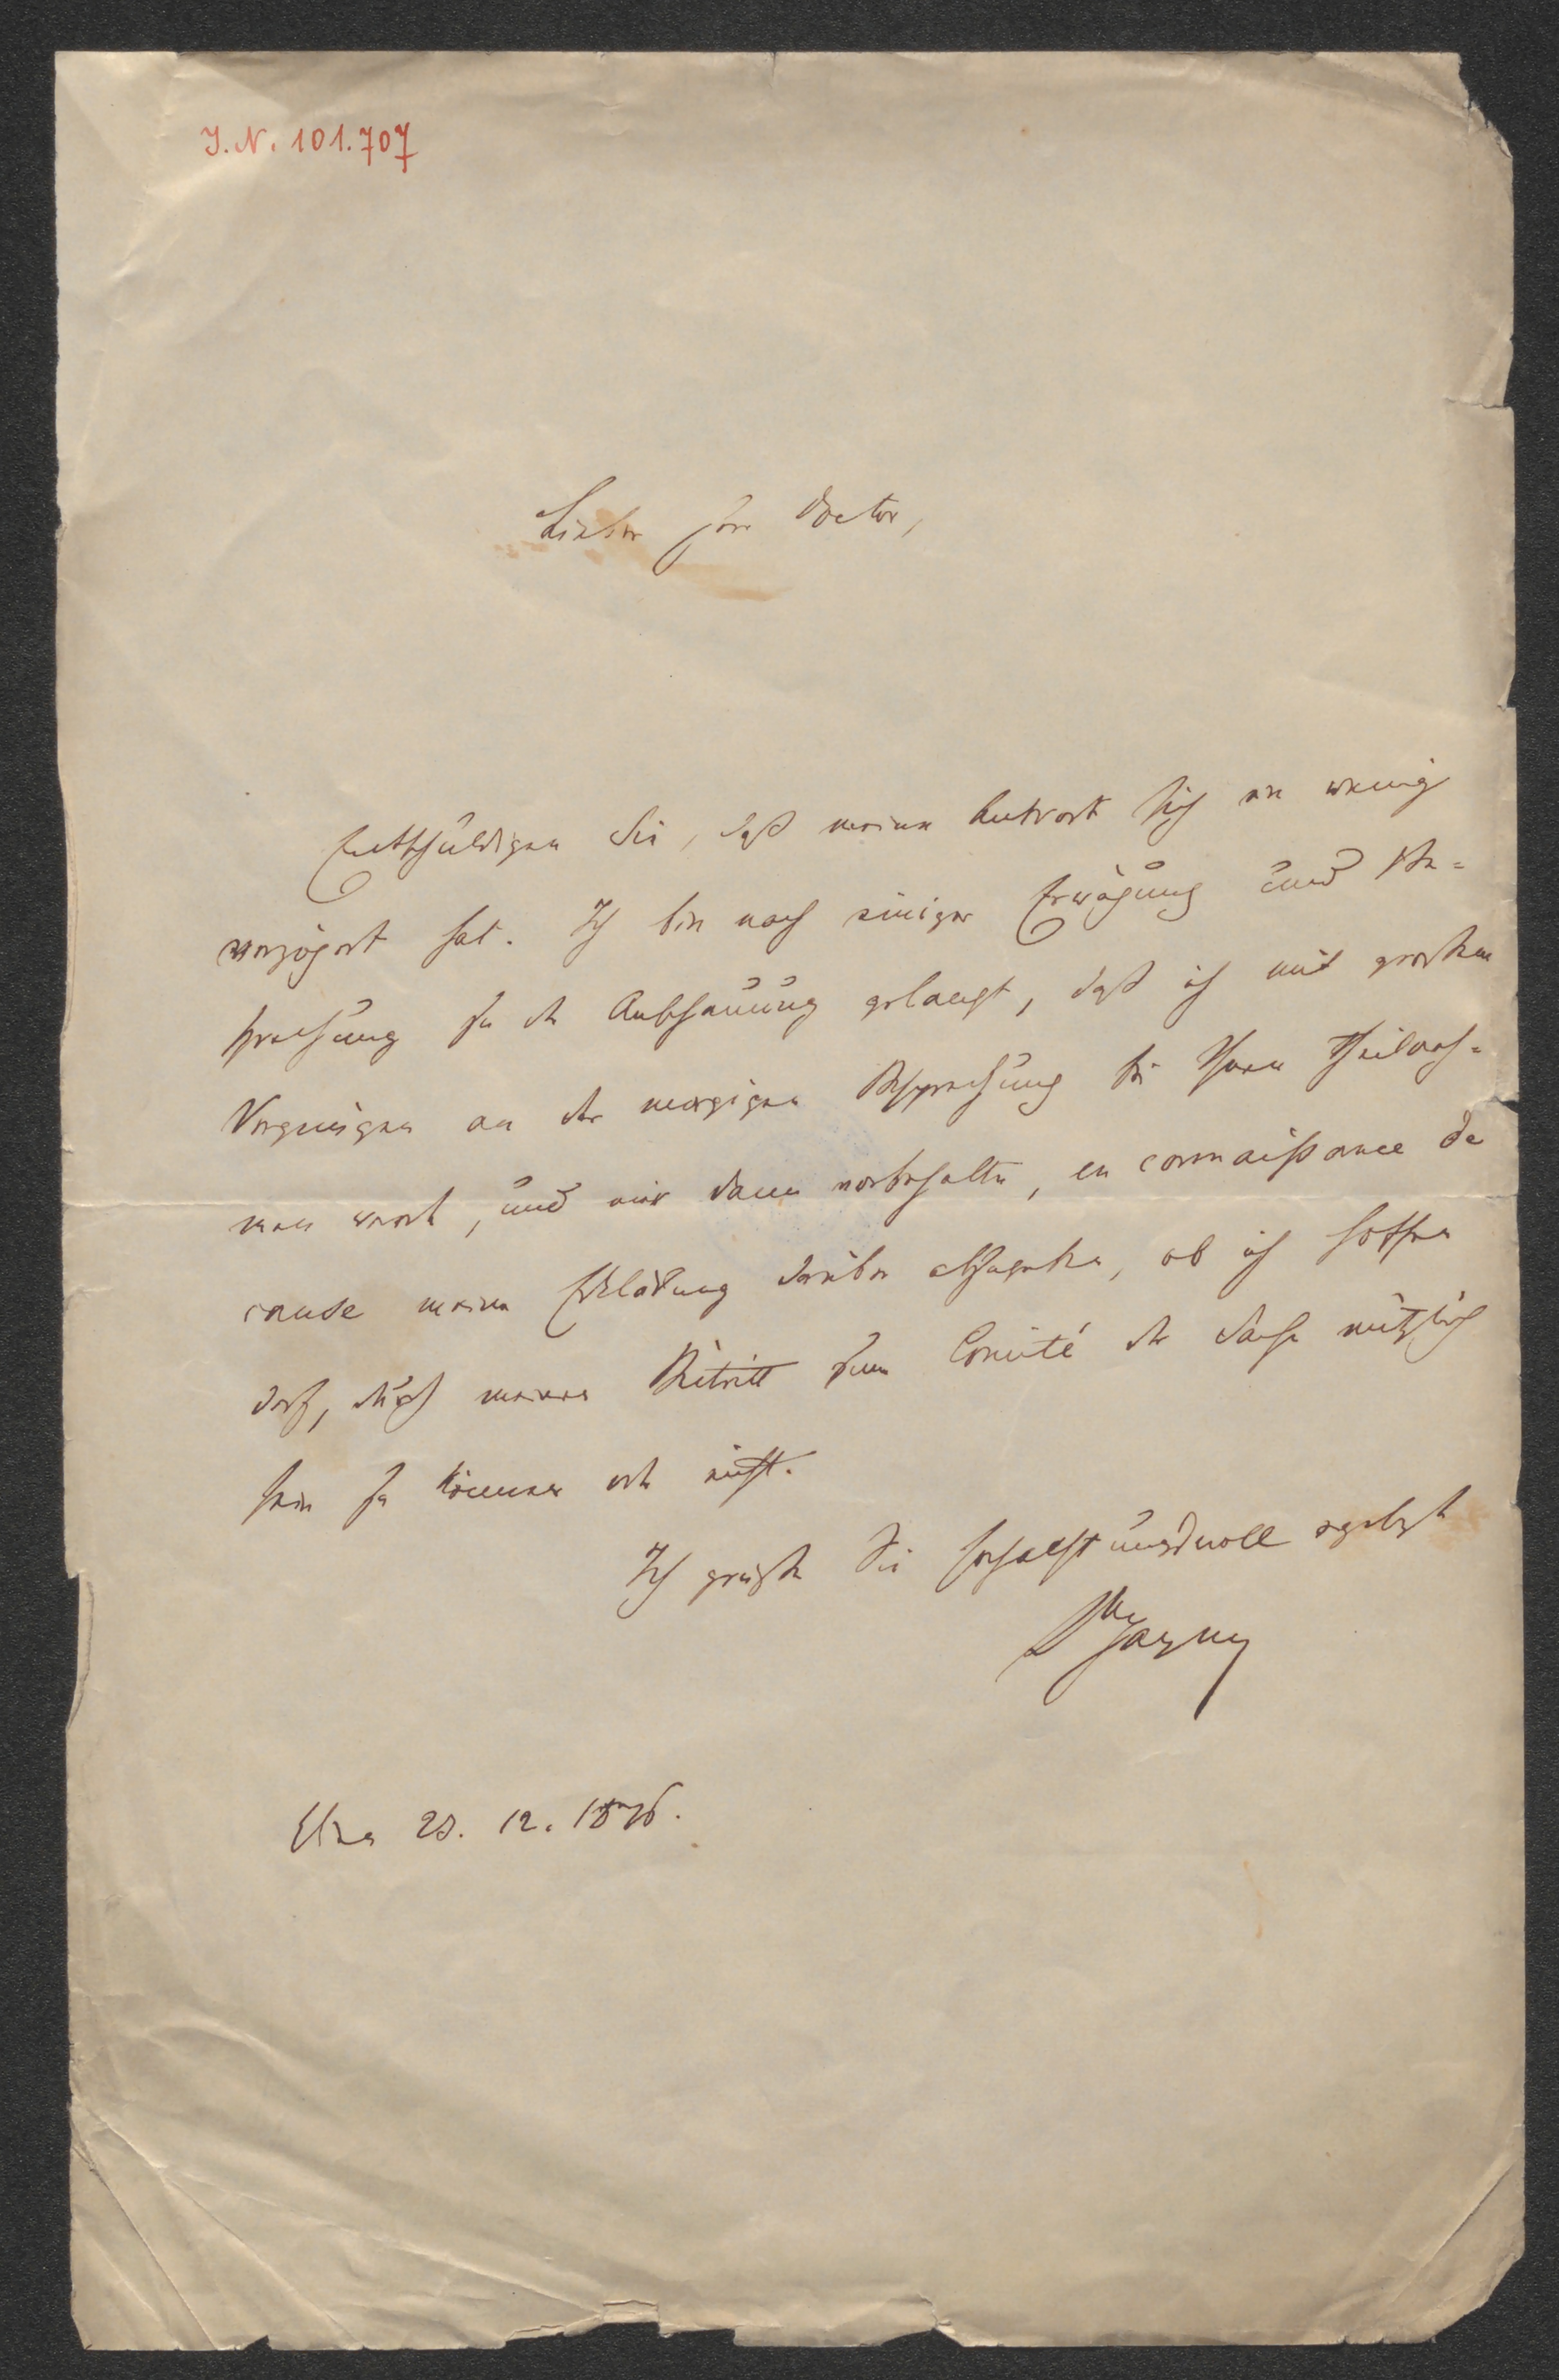 J. N. 101.707
Lieber Herr Doctor,
Entschuldigen Sie, daß meine Antwort sich ein wenig
verzögert hat. Ich bin nach einiger Erwägung und Be-
sprechung zu der Anschauung gelangt, daß ich mit großem
Vergnügen an der morgigen Besprechung bei Ihnen theilneh-
men werde, und mir dann vorbehalte, en connaissance de
cause meine Erklärung darüber abzugeben, ob ich hoffen
darf, durch meinen Beitritt zum Comité der Sache nützlich
sein zu können oder nicht.
Ich grüße Sie hochachtungsvoll ergebenst
Wien 12.